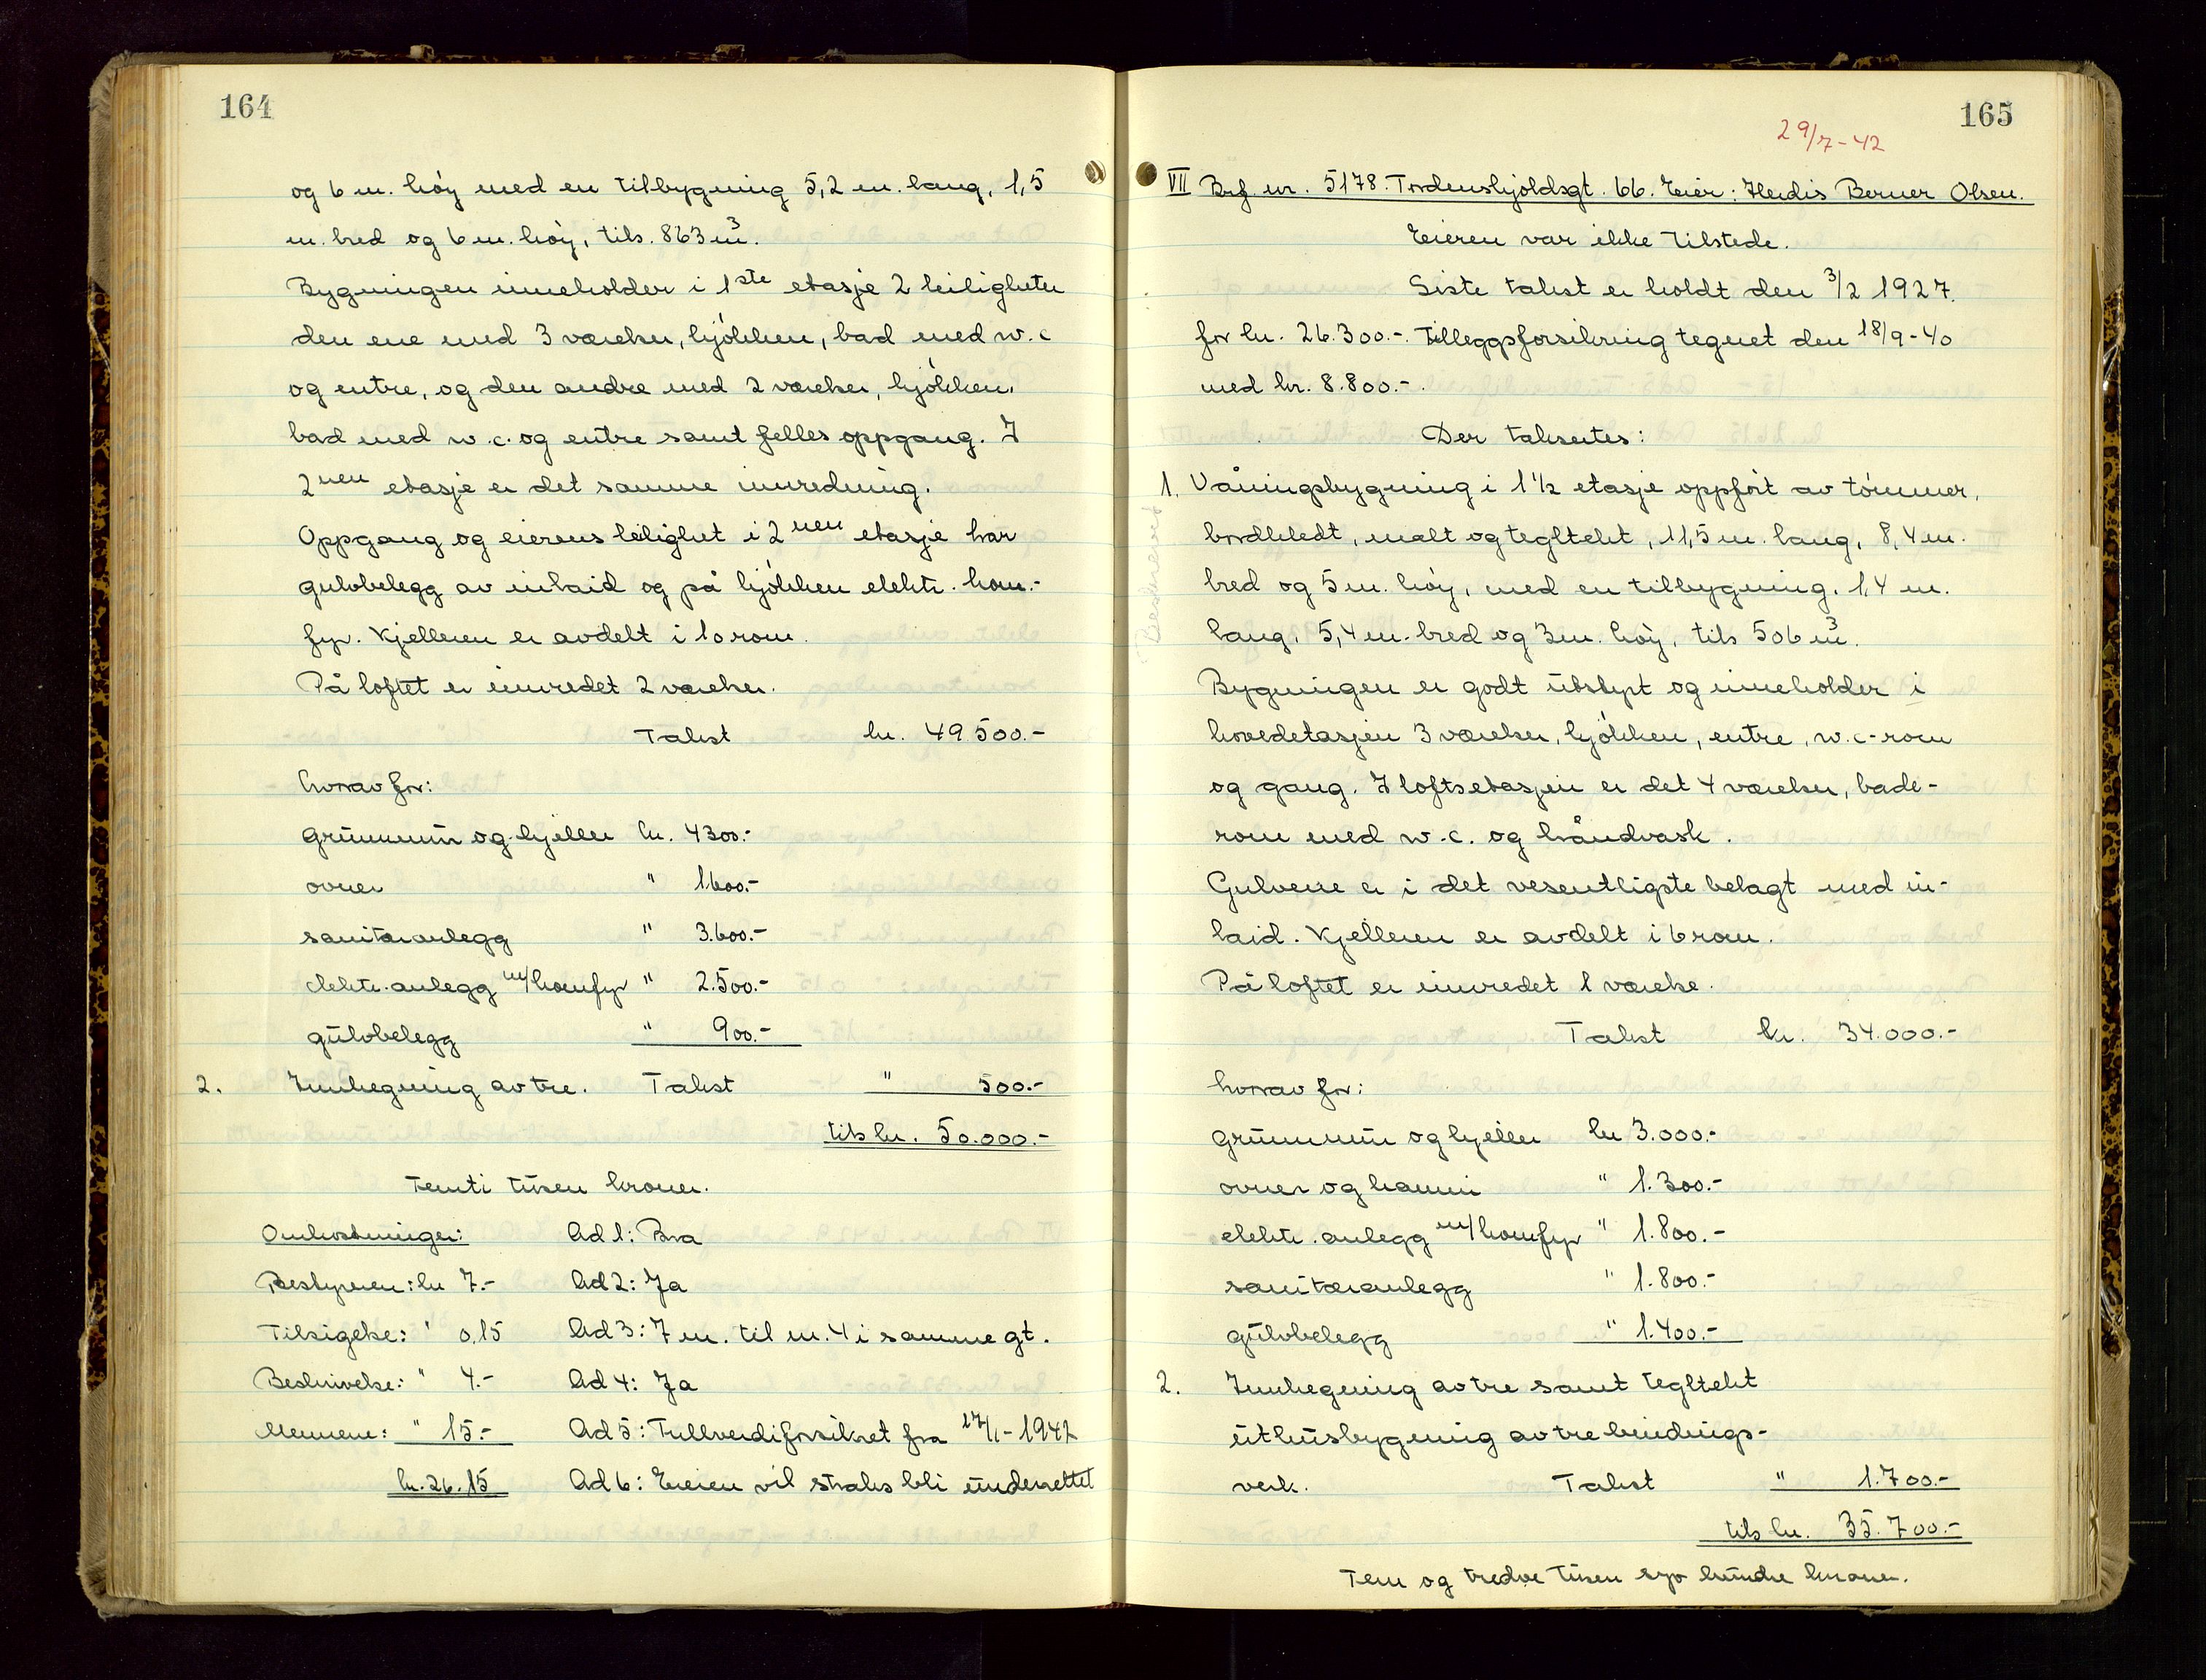 164
og 6 m. høy med en tilbygning 5,2 m. lang, 1,5
m. bred og 6 m. høy, tils. 863 m³.
Bygningen inneholder i 1ste etasje 2 leiligheter
den ene med 3 værelser, kjøkken, bad med w.c
og entre, og den andre med 2 værelser, kjøkken,
bad med w.c. og entre samt felles oppgang. I
2nen etasje er det samme innredning.
Oppgang og eierens leilighet i 2nen etasje har
gulvbelegg av inlaid og på kjøkken elektr. kom.-
fyr. Kjelleren er avdelt i 10 rom.
På loftet er innredet 2 værelser.
Takst kr. 49500.-
hvorav for:
grunnmur og kjeller kr. 4300.-
ovner " 1600.-
sanitæranlegg " 3.600.-
elektr. anlegg m/komfyr " 2.500.-
gulvbelegg " 900.-
2. Innhegning av tre. Takst " 500.-
tils kr. 50.000.-
Femti tusen kroner.
Omkostninger: Ad 1: Bra
Bestyreren: kr 7.- Ad 2: Ja
Tilsigelse: " 0,15 Ad 3: 7 m. til nr. 4 i samme gt.
Beskrivelse: " 4.- Ad 4: Ja
Mennene: " 15.- Ad 5: Fullverdiforsikret fra 17/1-1942
kr. 26.15 Ad 6: Eieren vil straks bli underrettet
165
29/7-42
VII Brf. nr. 5178. Tordenskjoldsgt. 66. Eier: Herdis Berner Olsen.
Eieren var ikke tilstede.
Siste takst er holdt den 3/2 1927.
for kr. 26.300.-. Tilleggsforsikring tegnet den 18/9-40
med kr. 8.800.-.
Der takseres:
1. Våningsbygning i 1 1/2 etasje oppført av tømmer,
bordkledt, malt og tegltekt, 11,5 m. lang, 8,4 m.
bred og 5 m. høy, med en tilbygning, 1,4 m.
lang, 5,4 m. bred og 3 m. høy, tils 506 m³.
Beskrevet
Bygningen er godt utstyrt og inneholder i
hovedetasjen 3 værelser, kjøkken, entre, w.c-rom
og gang. I loftsetasjen er det 4 værelser, bade-
rom med w.c. og håndvask.
Gulvene er i det vesentligste belagt med in-
laid. Kjelleren er avdelt i 6 rom.
På loftet er innredet 1 værelse.
Takst kr. 34.000.-
hvorav for:
grunnmur og kjeller kr 3.000.-
ovner og kamin " 1.300.-
elektr. anlegg m/komfyr " 1.800.-
sanitæranlegg " 1.800.-
gulvbelegg " 1.400.-
2. Innhegning av tre samt tegltekt
uthusbygning av tre bindings-
verk. Takst " 1.700.-
tils kr. 35.700.-
Fem og tredve tusen syv hundre kroner.